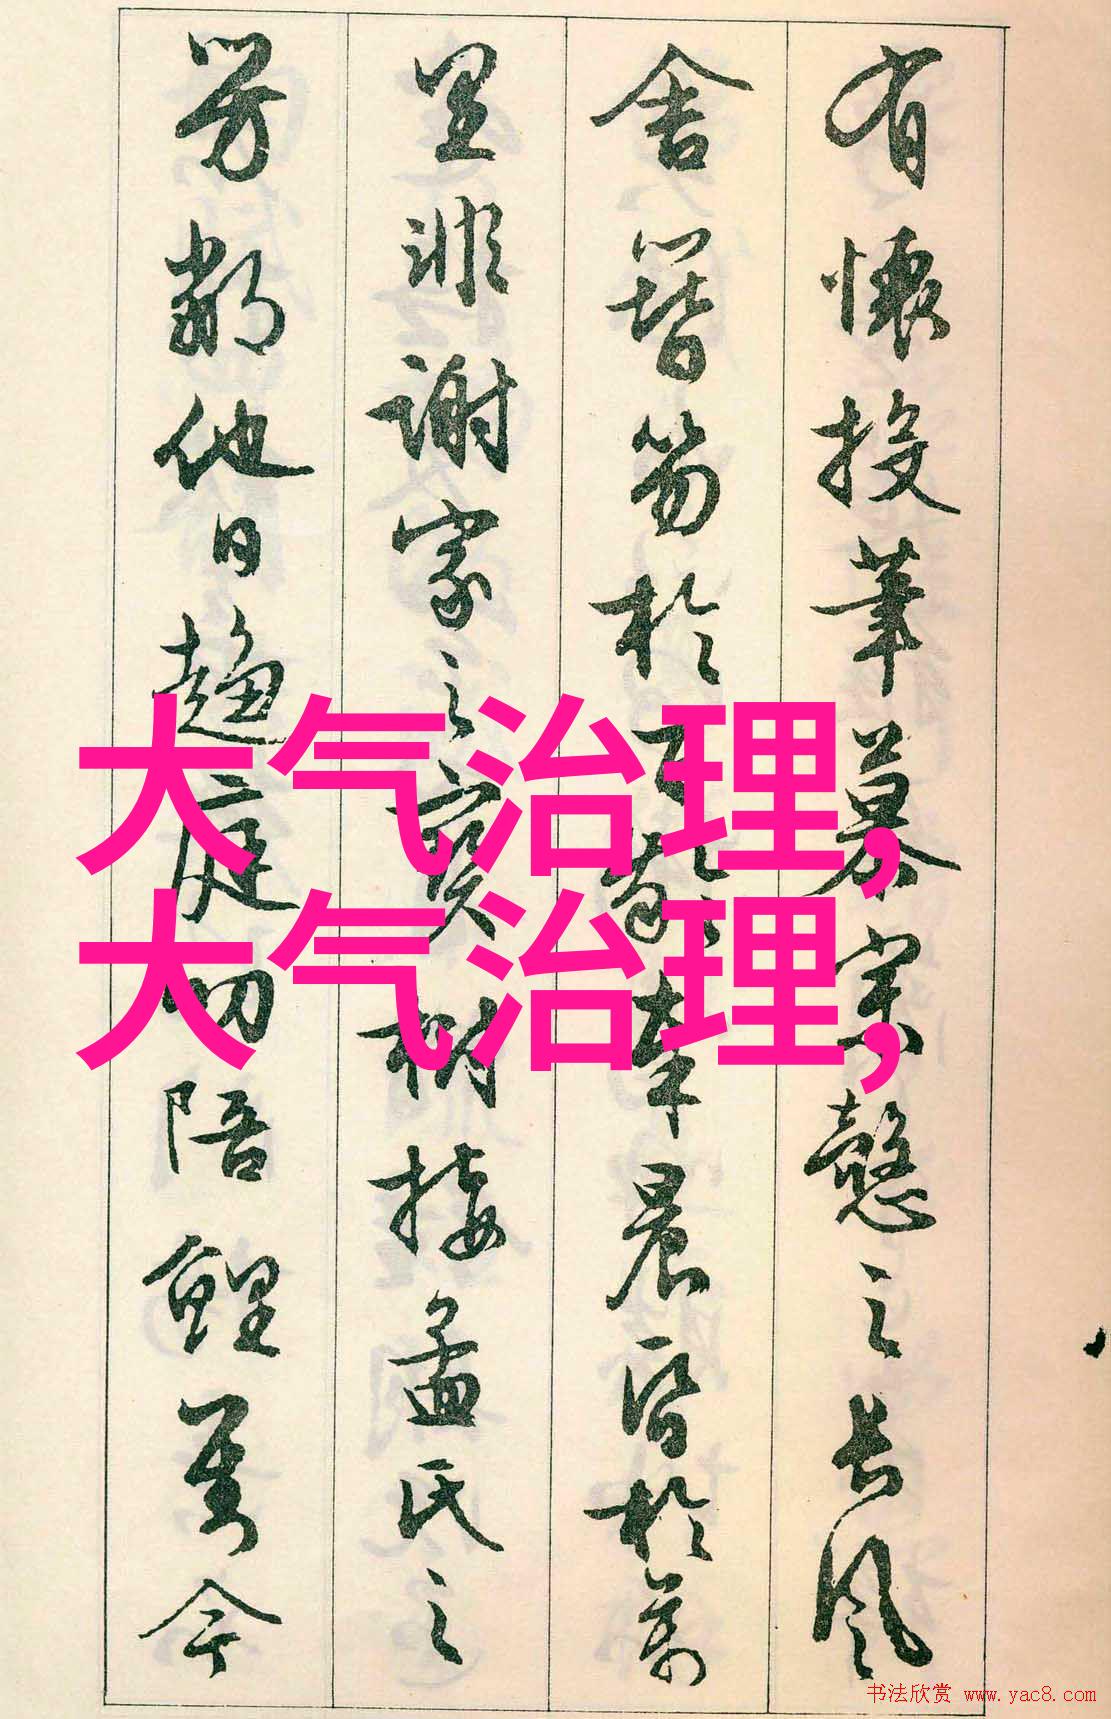 有懷投筆慕宗慤之長風
舍簪笏於百齡奉晨昏於萬
里非謝家之寶樹接孟氏之
芳鄰他日趨庭叨陪鯉對今
大气治理,
大气治理,
书法欣赏 www.yac8.com